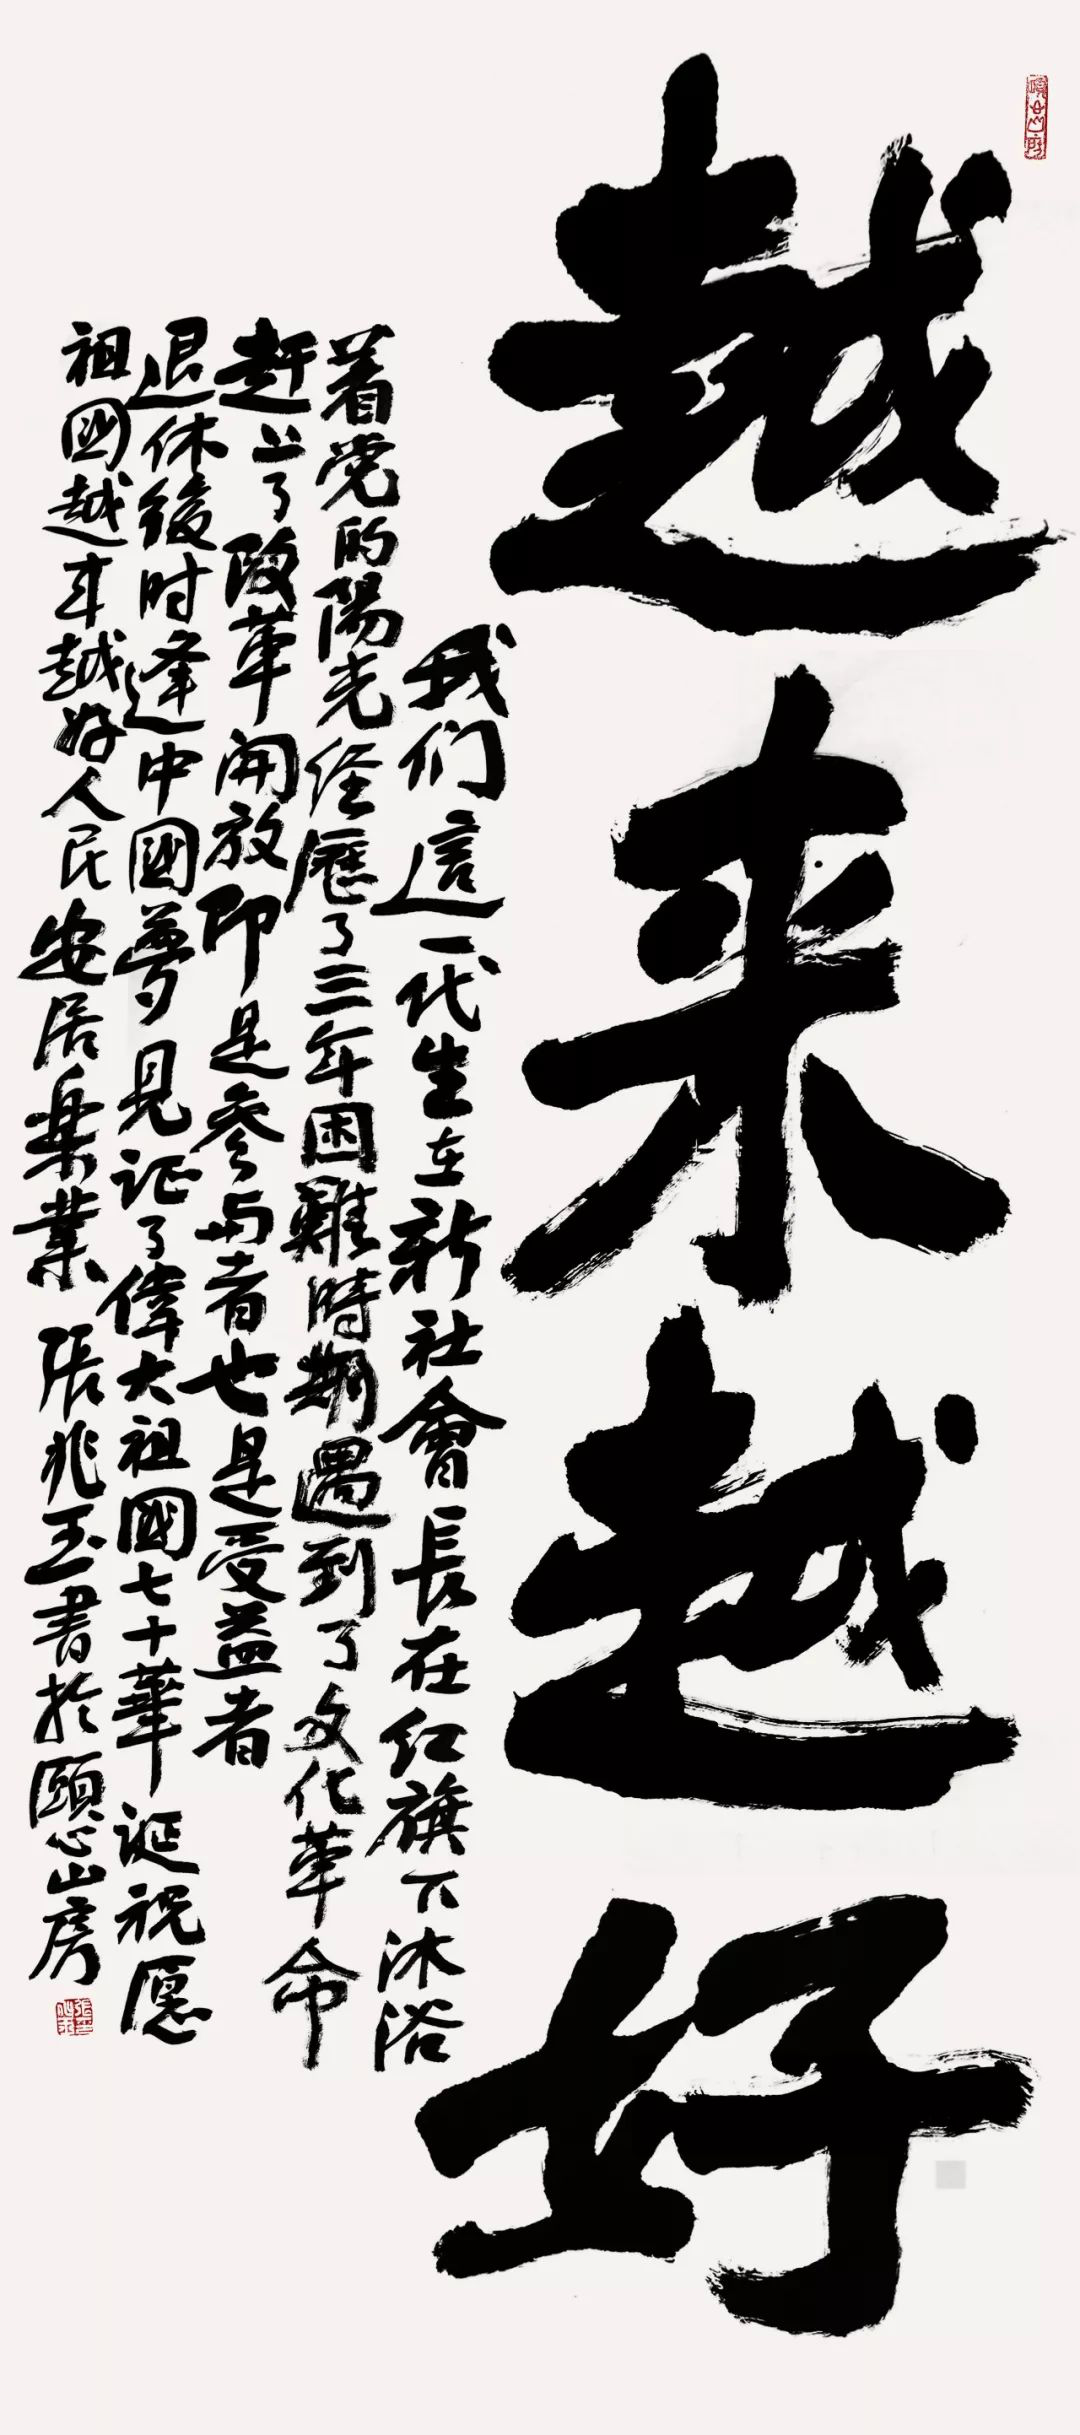 越来越好
我们這一代生在新社會長在红旗下沐浴
着党的陽光经歷了三年困難時期遇到了文化革命
赶上了改革開放即是参与者也是受益者
退休後时逢中國夢見证了偉大祖國七十華诞祝愿
祖國越来越好人民安居樂業 張兆玉書於頤心山房